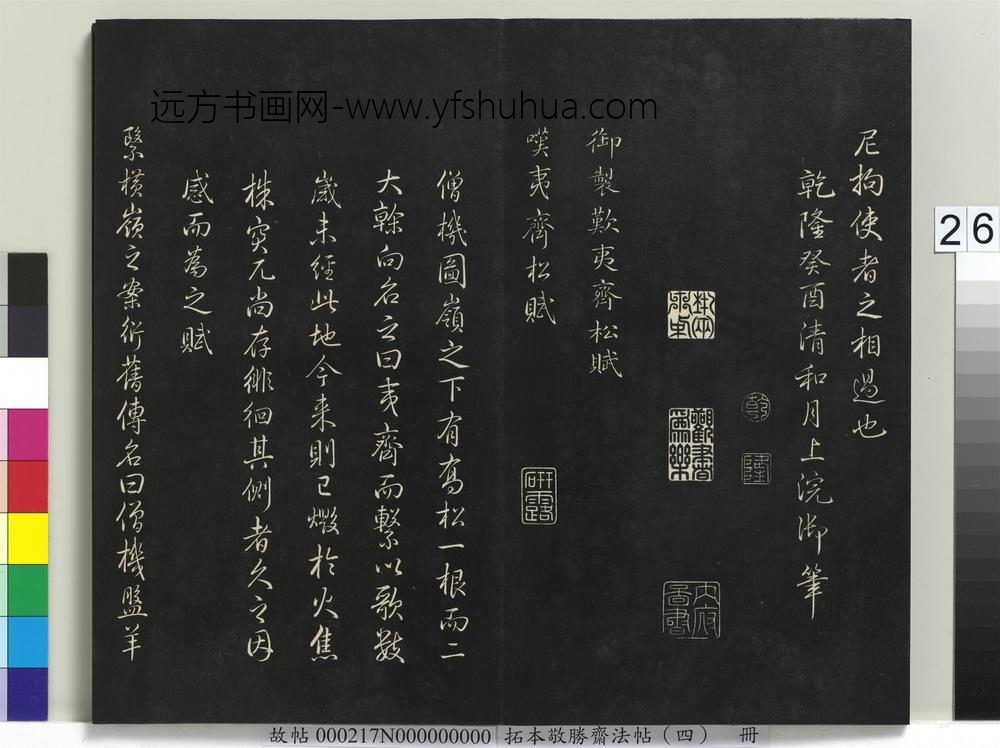 远方书画网-www.yfshuhua.com
尼拘使者之相過也
乾隆癸酉清和月上浣御筆
乾
隆
觀書為樂
內府書
御製歎夷齊松賦
嘆夷齊松賦
研露
僧機圖嶺之下有喬松一根而二
大榦向名之曰夷齊而繫以歌數
歲未經此地今来則已燬於火焦
株突兀尚存徘徊其側者久之因
感而為之賦
緊橫嶺之案衍舊傳名曰僧機盤羊
26
故帖 000217N000000000 拓本敬勝齋法帖（四） 冊